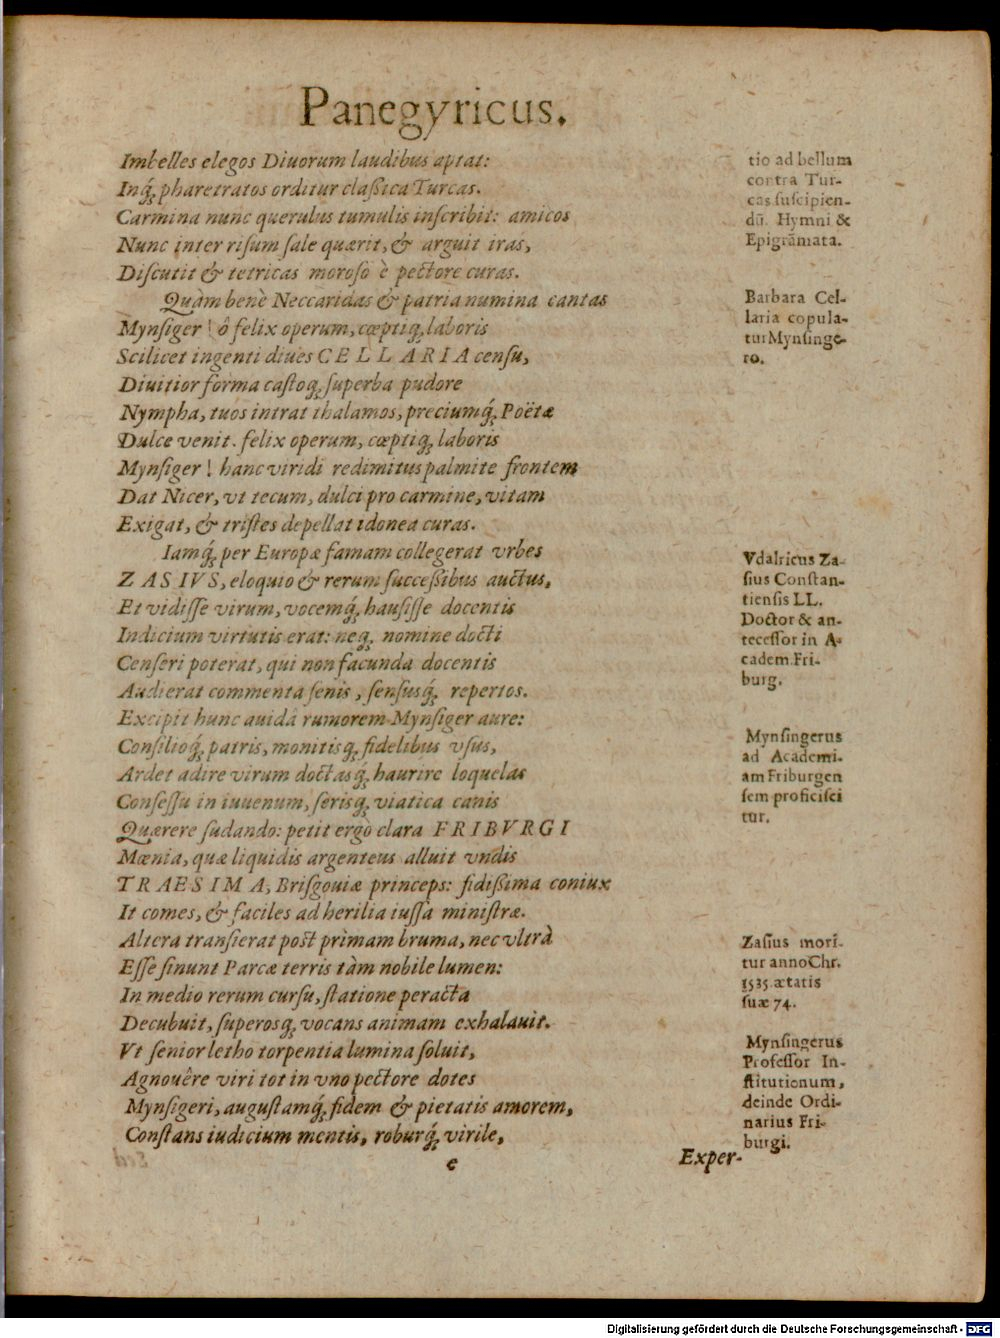 Panegyricus.
Imbelles elegos Diuorum laudibus aptat:
Inq́; pharetratos orditur claßica Turcas.
Carmina nunc querulus tumulis inſcribit: amicos
Nunc inter riſum ſale quærit, & arguit iras,
Diſcutit & tetricas moroſo è pectore curas.
Quàm benè Neccaridas & patria numina cantas
Mynſiger! ô felix operum, cœptiq́; laboris
Scilicet ingenti diues CELLARIA cenſu,
Diuitior forma caſtoq́; ſuperba pudore
Nympha, tuos intrat thalamos, preciumq́; Poëtæ
Dulce venit. felix operum, cœptiq́; laboris
Mynſiger! hanc viridi redimitus palmite frontem
Dat Nicer, vt tecum, dulci pro carmine, vitam
Exigat, & triſtes depellat idonea curas.
Iamq́; per Europæ famam collegerat vrbes
ZASIVS, eloquio & rerum ſucceßibus auctus,
Et vidiſſe virum, vocemq́; hauſiſſe docentis
Indicium virtutis erat: neq; nomine docti
Cenſeri poterat, qui non facunda docentis
Audierat commenta ſenis, ſenſusq́; repertos.
Excipit hunc auidâ rumorem Mynſiger aure:
Conſilioq́; patris, monitisq́; fidelibus vſus,
Ardet adire virum doctasq́; haurire loquelas
Conſeſſu in iuuenum, ſerisq́; viatica canis
Quærere ſudando: petit ergò clara FRIBVRGI
Mœnia, quæ liquidis argenteus alluit vndis
TRAESIMA, Briſgouiæ princeps: fidißima coniux
It comes, & faciles ad herilia iuſſa miniſtræ.
Altera tranſierat poſt primam bruma, nec vltrà
Eſſe ſinunt Parcæ terris tàm nobile lumen:
In medio rerum curſu, ſtatione peracta
Decubuit, ſuperosq́; vocans animam exhalauit.
Vt ſenior letho torpentia lumina ſoluit,
Agnouêre viri tot in vno pectore dotes
Mynſigeri, auguſtamq́; fidem & pietatis amorem,
Conſtans iudicium mentis, roburq́; virile,
e
Exper-
tio ad bellum
contra Tur-
cas ſuſcipien-
dū. Hymni &
Epigrāmata.
Barbara Cel-
laria copula-
tur Mynſinge-
ro.
Vdalricus Za-
ſius Conſtan-
tienſis LL.
Doctor & an-
teceſſor in A-
cadem. Fri-
burg.
Mynſingerus
ad Academi-
am Friburgen
ſem proficiſci
tur.
Zaſius mori-
tur anno Chr.
1535. ætatis
ſuæ 74.
Mynſingerus
Profeſſor In-
ſtitutionum,
deinde Ordi-
narius Fri-
burgi.
Digitalisierung gefördert durch die Deutsche Forschungsgemeinschaft - DFG